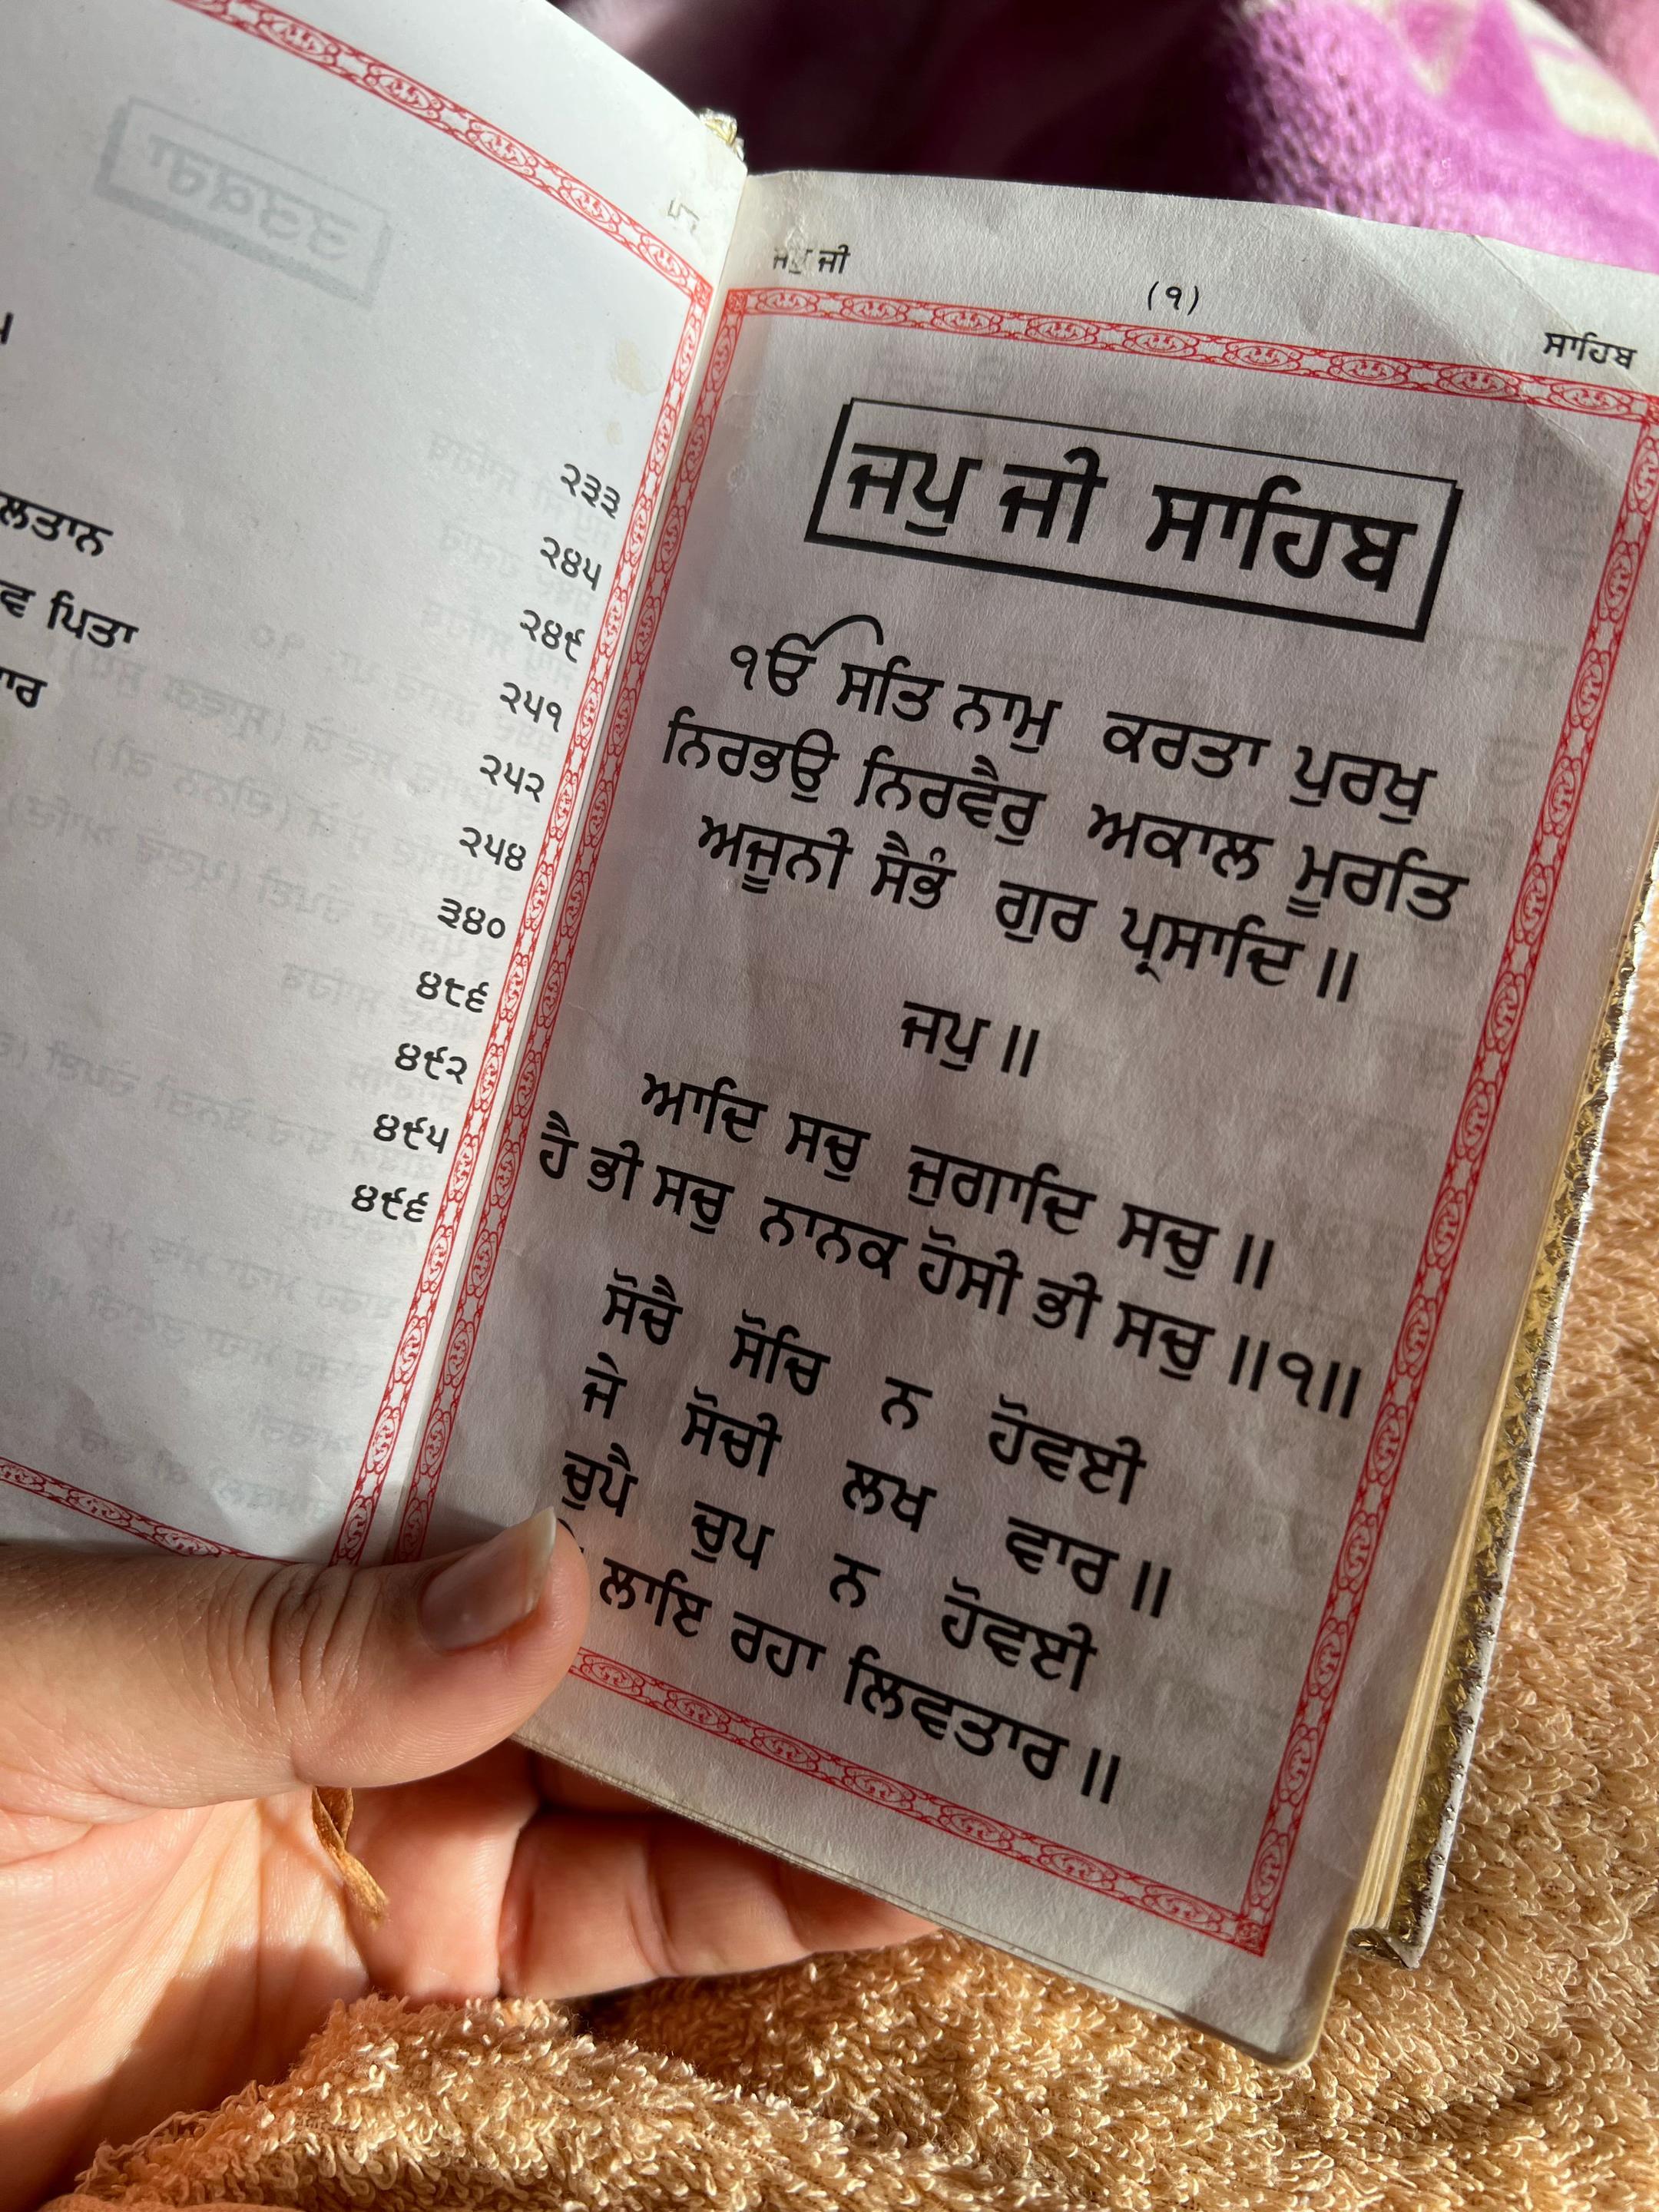 ਲਤਾਨ
ਵ ਪਿਤਾ
ਾਰ
੨੩੩
੨੪੫
੨੪੯
੨੫੧
੨੫੨
੨੫੪
੩੪੦
੪੮੬
੪੯੨
੪੯੫
੪੯੬
ਜਪੁ ਜੀ (੧) ਸਾਹਿਬ
ਜਪੁ ਜੀ ਸਾਹਿਬ
ੴ ਸਤਿ ਨਾਮੁ ਕਰਤਾ ਪੁਰਖੁ
ਨਿਰਭਉ ਨਿਰਵੈਰੁ ਅਕਾਲ ਮੂਰਤਿ
ਅਜੂਨੀ ਸੈਭੰ ਗੁਰ ਪ੍ਰਸਾਦਿ ॥
ਜਪੁ ॥
ਆਦਿ ਸਚੁ ਜੁਗਾਦਿ ਸਚੁ ॥
ਹੈ ਭੀ ਸਚੁ ਨਾਨਕ ਹੋਸੀ ਭੀ ਸਚੁ ॥੧॥
ਸੋਚੈ ਸੋਚਿ ਨ ਹੋਵਈ
ਜੇ ਸੋਚੀ ਲਖ ਵਾਰ ॥
ਚੁਪੈ ਚੁਪ ਨ ਹੋਵਈ
ਲਾਇ ਰਹਾ ਲਿਵਤਾਰ ॥